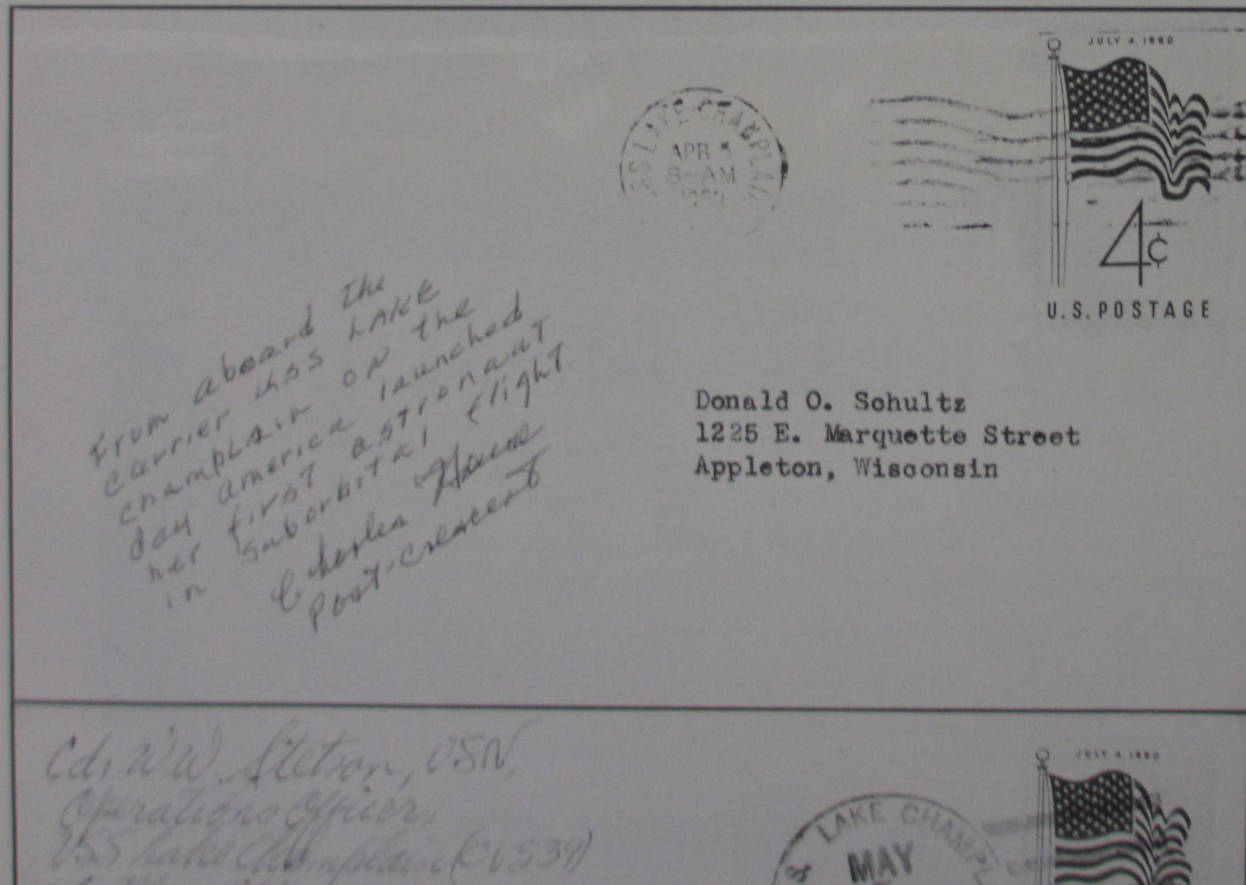 JULY 4, 1960
SS LAKE CHAMPLAI
APR 5
8-AM
4¢
U.S. POSTAGE
From aboard the
carrier USS LAKE
champlain on the
day america launched
her first astronaut
in suborbital flight
Charles
Post-Crescent
Donald O. Schultz
1225 E. Marquette Street
Appleton, Wisconsin
Cdr W.W. Stetson, USN,
Operations Officer,
USS Lake Champlain (CVS39)
JULY 4, 1960
S. LAKE CHAMPL
MAY